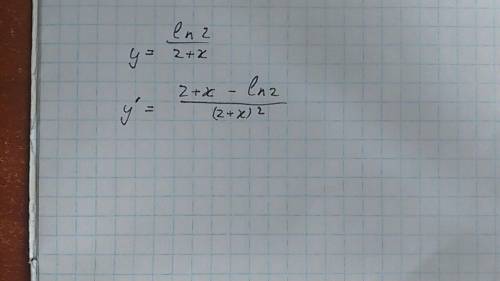 y = ln2 / 2+x
y' = 2+x - ln2 / (2+x)2